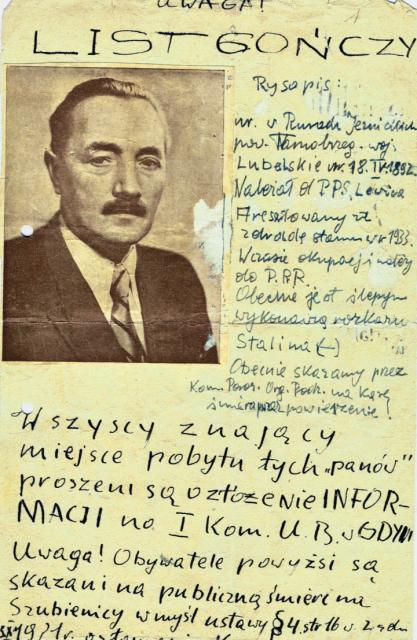 UWAGA!
LIST GOŃCZY
Rysopis:
ur. w
pow. Tarnobrzeg. woj.
Lubelskie ur. 18. IV. 1892
Należał d PPS. Lewica
Aresztowany za
zdradę stanu w r 1933.
W czasie okupacji należy
do P.P.R.
Obecnie jest ślepym
wykonawcą rozkazu
Stalina (-)
Obecnie skazany przez
Kom. Org. na karę
śmierci powieszenie!
Wszyscy znający
miejsce pobytu tych „panów"
proszeni są o złożenie INFOR-
MACJI na I Kom. U.B. w GDYNI
Uwaga! Obywatele powyżsi są
skazani na publiczną śmierć na
Szubienicy w myśl ustawy § 4. str 16 z